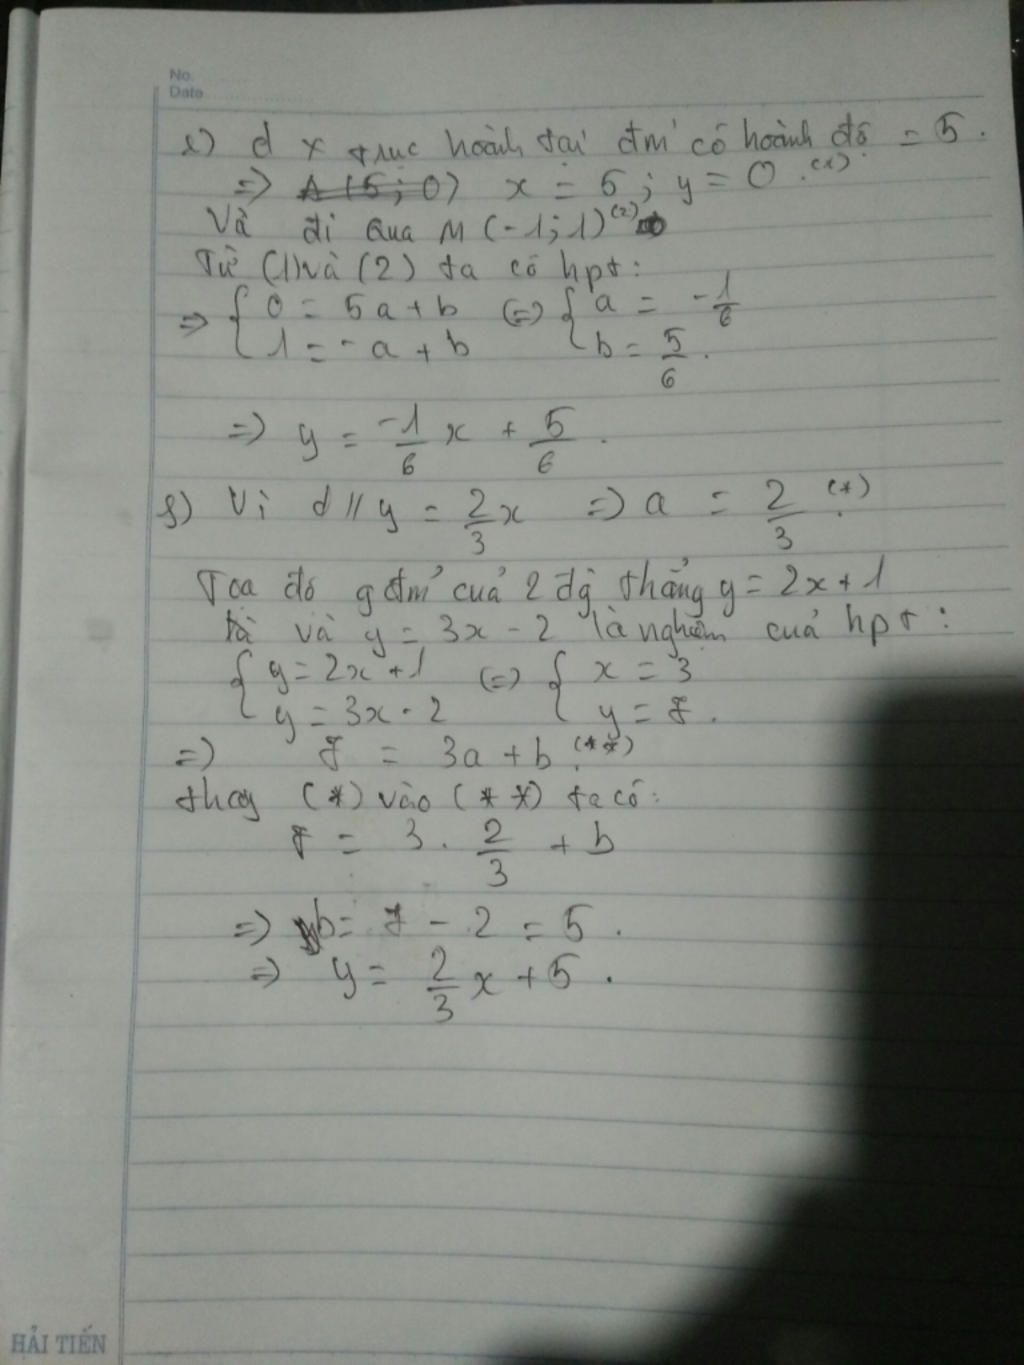 No.
Date
e) d x trục hoành tại đm' có hoành độ = 5.
=> A (5; 0) x = 5; y = 0. (1)
Và đi qua M (-1; 1) (2)
Từ (1) và (2) ta có hpt:
=> { 0 = 5a + b (=) { a = -1/6
1 = -a + b b = 5/6.
=> y = -1/6 x + 5/6.
f) Vì d // y = 2/3 x => a = 2/3. (*)
Tọa độ g đm' của 2 đg thẳng y = 2x + 1
và y = 3x - 2 là nghiệm của hpt:
{ y = 2x + 1 (=) { x = 3
y = 3x - 2 y = 7.
=> 7 = 3a + b. (**)
thay (*) vào (**) ta có:
7 = 3. 2/3 + b
=> b = 7 - 2 = 5.
=> y = 2/3 x + 5.
HẢI TIẾN